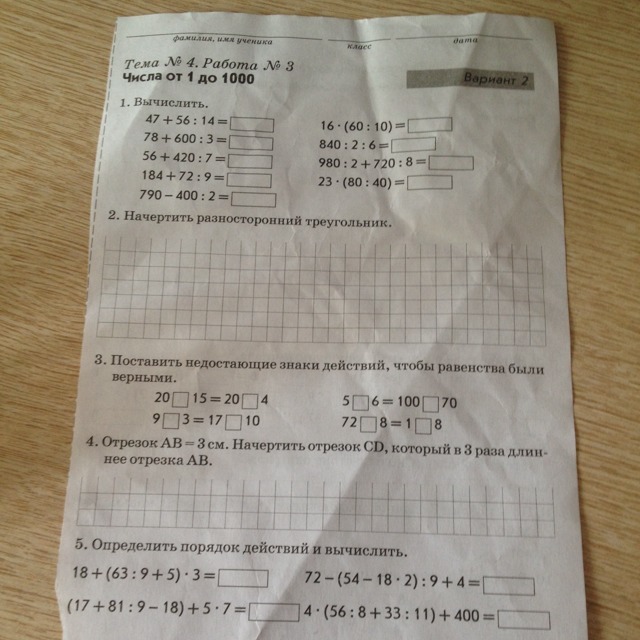 фамилия, имя ученика класс дата
Тема № 4. Работа № 3
Числа от 1 до 1000
Вариант 2
1. Вычислить.
47 + 56 : 14 =
78 + 600 : 3 =
56 + 420 : 7 =
184 + 72 : 9 =
790 – 400 : 2 =
16 · (60 : 10) =
840 : 2 : 6 =
980 : 2 + 720 : 8 =
23 · (80 : 40) =
2. Начертить разносторонний треугольник.
3. Поставить недостающие знаки действий, чтобы равенства были
верными.
20 □ 15 = 20 □ 4 5 □ 6 = 100 □ 70
9 □ 3 = 17 □ 10 72 □ 8 = 1 □ 8
4. Отрезок AB = 3 см. Начертить отрезок CD, который в 3 раза длин-
нее отрезка AB.
5. Определить порядок действий и вычислить.
18 + (63 : 9 + 5) · 3 = 72 – (54 – 18 · 2) : 9 + 4 =
(17 + 81 : 9 – 18) + 5 · 7 = 4 · (56 : 8 + 33 : 11) + 400 =